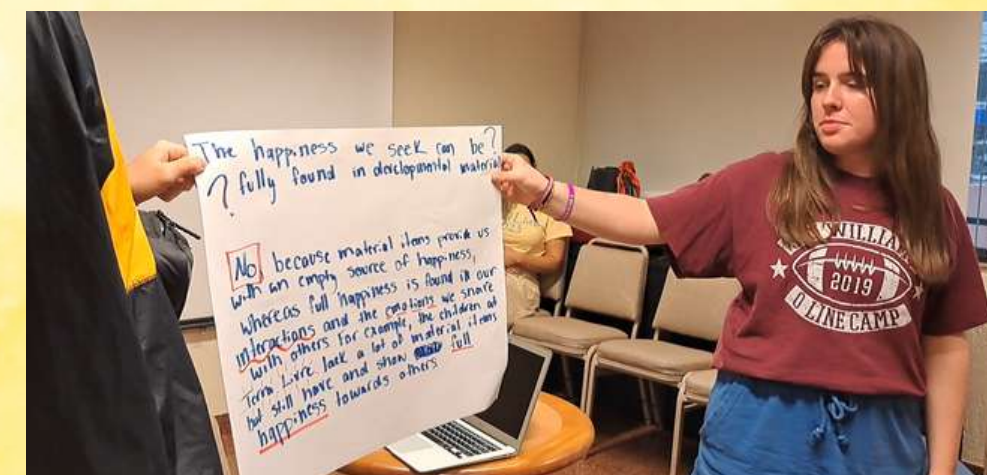 The happiness we seek can be?
? fully found in developmental material
No, because material items provide us
with an empty source of happiness,
whereas full happiness is found in our
interactions and the emotions we share
with others for example, the children at
Terra Livre lack a lot of material items
but still have and show full
happiness towards others
WILLIA
2019
O LINE CAMP